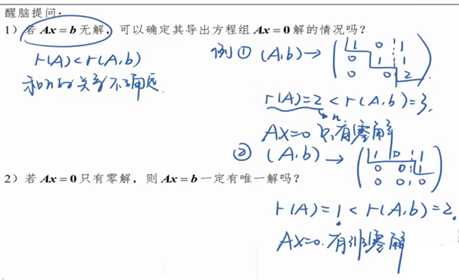 醒脑提问：
1）若 Ax = b 无解，可以确定其导出方程组 Ax = 0 解的情况吗？
r(A)<r(A,b)
和n的关系不确定.
例① (A,b) → ( 1 0 1
0 1 1
0 0 2 )
r(A)=2 < r(A,b)=3.
n
AX=0 只有零解
② (A,b) → ( 1 0 1
0 0 1
0 0 0 )
r(A)=1 < r(A,b)=2.
AX=0. 有非零解
2）若 Ax = 0 只有零解，则 Ax = b 一定有唯一解吗？